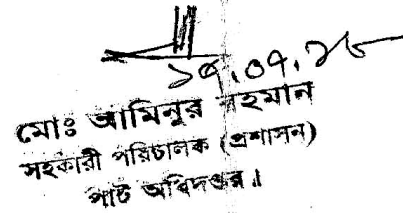 ১৭.০৭.১৮
মোঃ আমিনুর রহমান
সহকারী পরিচালক (প্রশাসন)
পাট অধিদপ্তর।